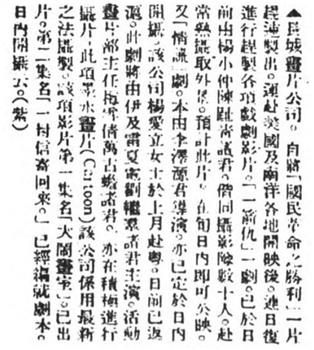 ▲長城畫片公司。自將「國民革命之勝利」一片
趕速製出。運赴美國及南洋各地開映後。連日復
進行趕製各項戲劇影片。「一箭仇」一劇。已於日
前由楊小仲陳趾青諸君。偕同攝影隊數十人。赴
常熟攝取外景。預計此片。在旬日內即可公映。
又「情諜」劇本。由李澤源君導演。亦已定於日內
開攝。該公司楊愛立女士。於上月赴粵。日前已返
滬。此劇將由伊及雷夏電劉繼羣諸君主演。活動
畫片部主任梅雪儔萬古蟾諸君。亦在積極進行
攝片。此項墨水畫片(Cartoon)該公司係用最新
之法攝製。該項影片第一集名「大鬧畫室。」已出
片。第二集名「一封信寄回來。」已經編就劇本。
日內開攝云。(紫)